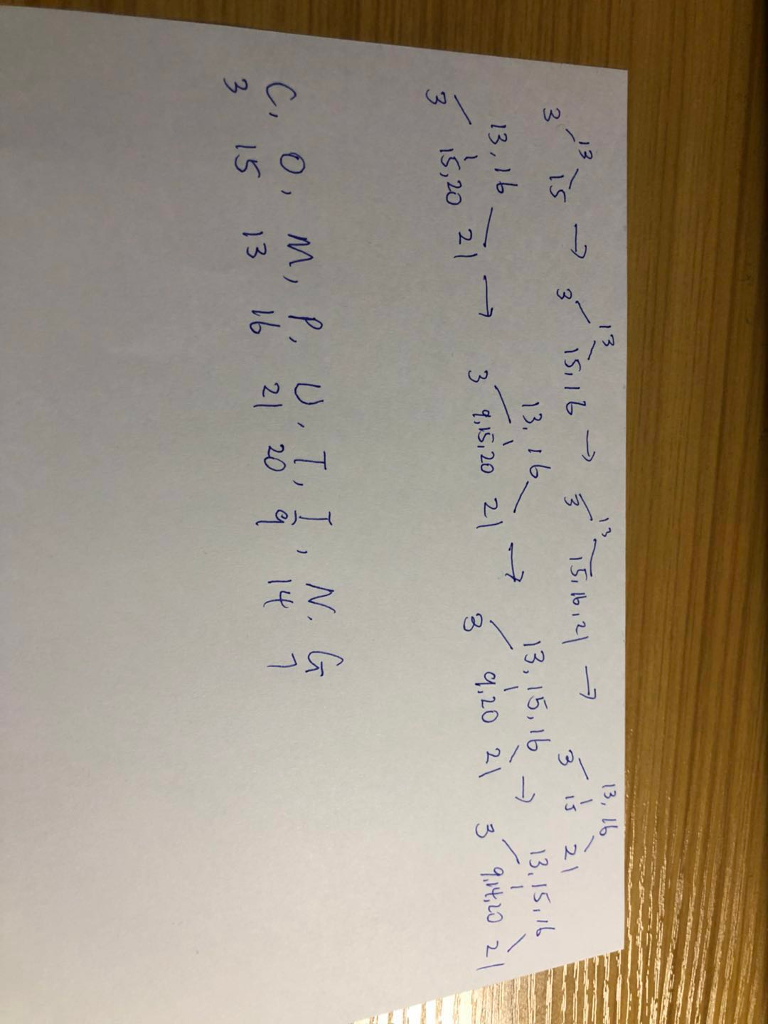 13 13 13 13, 16
3 15 → 3 15, 16 → 3 15, 16, 21 → 3 15 21
13, 16 13, 16 13, 15, 16 13, 15, 16
3 15, 20 21 → 3 9, 15, 20 21 → 3 9, 20 21 → 3 9, 14, 20 21
C, O, M, P, U, T, I, N, G
3 15 13 16 21 20 9 14 7